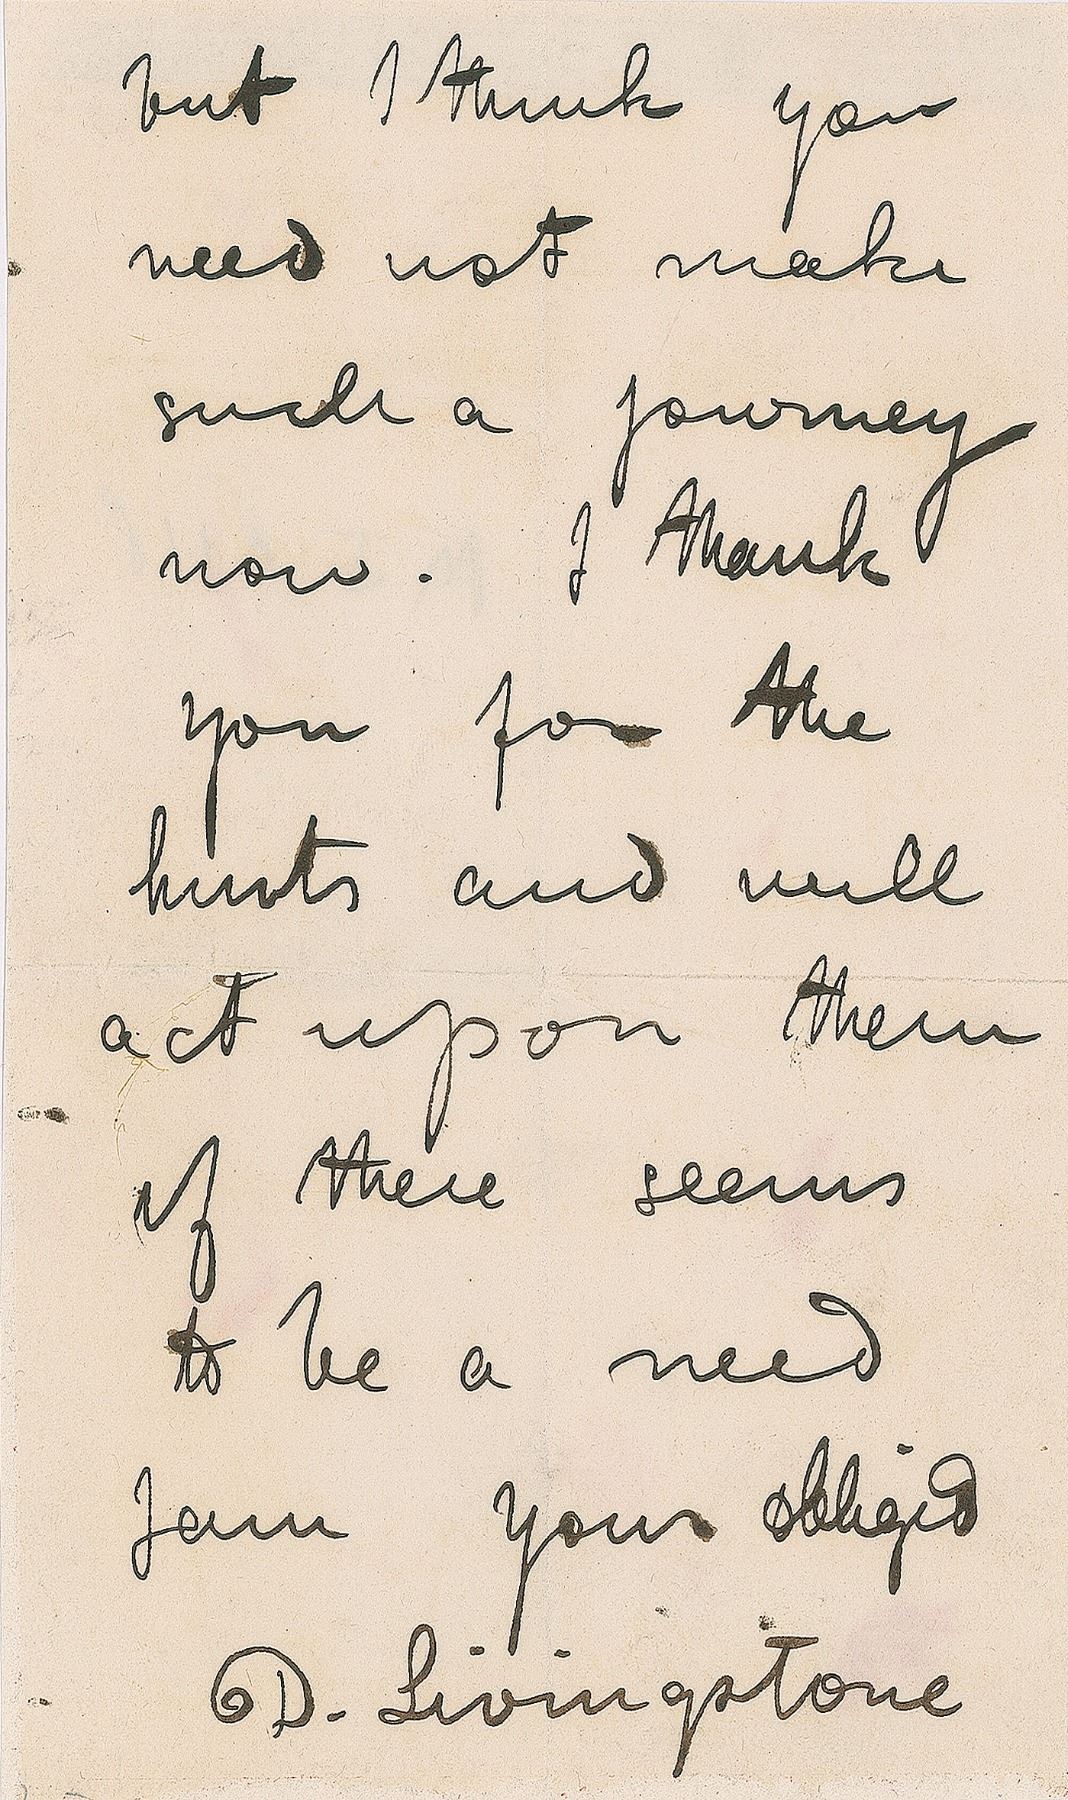 but I think you
need not make
such a journey
now. I thank
you for the
hints and will
act upon them
if there seems
to be a need
I am your obliged
D. Livingstone